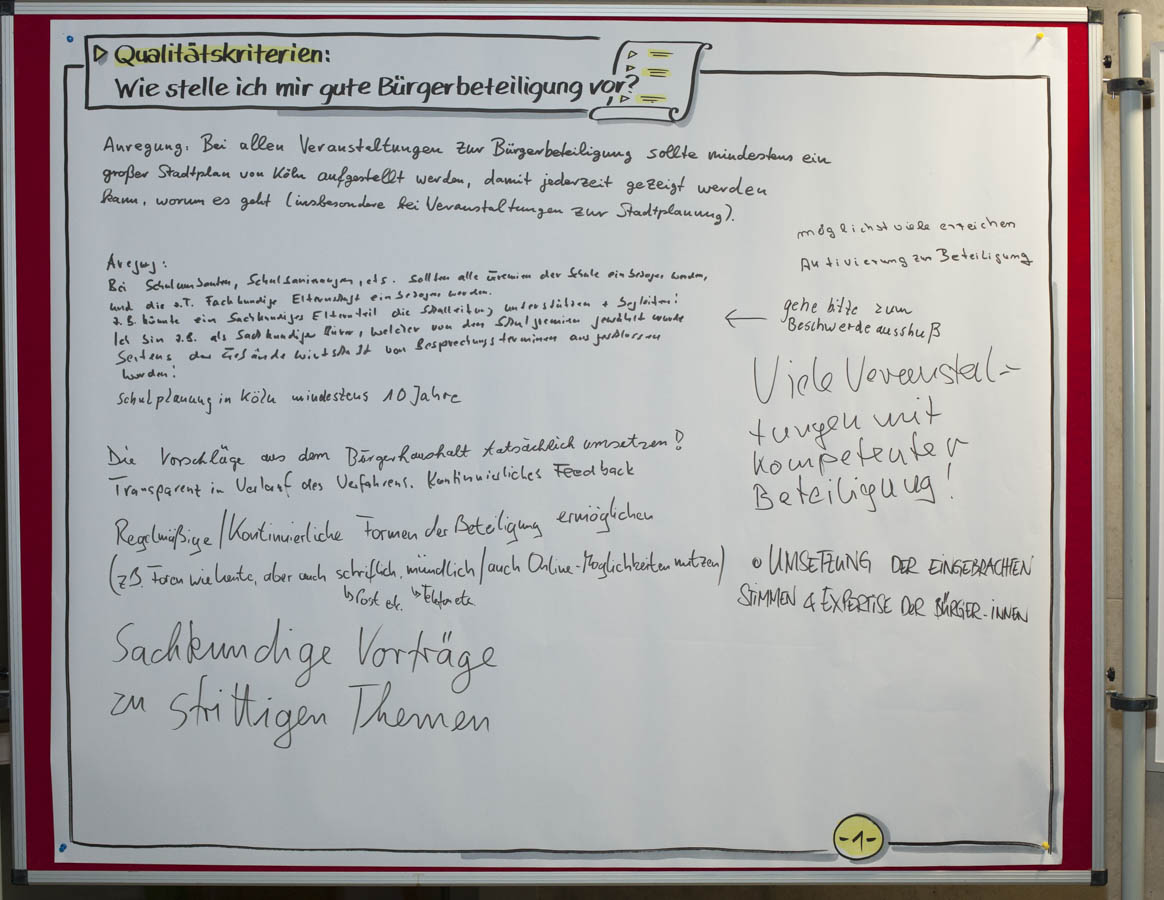 Qualitätskriterien:
Wie stelle ich mir gute Bürgerbeteiligung vor?
Anregung: Bei allen Veranstaltungen zur Bürgerbeteiligung sollte mindestens ein
großer Stadtplan von Köln aufgestellt werden, damit jederzeit gezeigt werden
kann, worum es geht (insbesondere bei Veranstaltungen zur Stadtplanung).
Aregung:
Bei Schulumbauten, Schulsanierungen, ets. sollten alle Gremien der Schule einbezogen werden,
und die z.T. Fachkundige Elternschaft einbezogen werden.
z.B. könnte ein Sachkundiges Elternteil die Schulleitung unterstützen + begleiten!
Ich bin z.B. als Sachkundiger Bürger, welcher von den Schulgremien gewählt wurde
Seitens der Gebäudewirtschaft von Besprechungsterminen ausgeschlossen
worden!
Schulplanung in Köln mindestens 10 Jahre
Die Vorschläge aus dem Bürgerhaushalt tatsächlich umsetzen!
Transparent in Verlauf des Verfahrens. Kontinuierliches Feedback
Regelmäßige/Kontinuierliche Formen der Beteiligung ermöglichen
(z.B. Foren wie heute, aber auch schriflich, mündlich/auch Online-Möglichkeiten nutzen)
↳Post etc. ↳Telefon etc.
Sachkundige Vorträge
zu strittigen Themen
möglichst viele erreichen
Aktivierung zur Beteiligung
← gehe bitte zum
Beschwerdeausshuß
Viele Veranstal-
tungen mit
kompetenter
Beteiligung!
• UMSETZUNG DER EINGEBRACHTEN
STIMMEN & EXPERTISE DER BÜRGER-INNEN
-1-